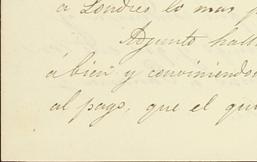 á Londres lo mas p
Adjunto hall
á bien y conviniendo
al pago, que el qu